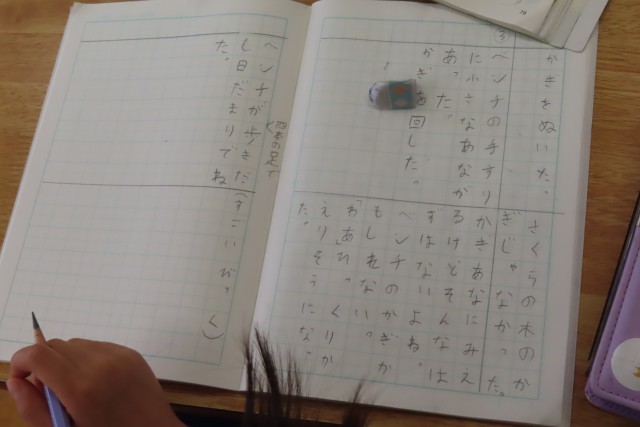 かぎをぬいた。
③
ベンチの手すり
に小さなあなが
あった。
かぎを回した。
さくらの木のか
ぎじゃなかった。
かぎあなにみえ
るけどそんなは
ずはないよね。
ベンチのかぎか
もしれない。
「わあ」ひっくりか
えりそうになっ
た。
四本の足で
ベンチが歩きだ
し日だまりでね
た。
(すごいびっく)